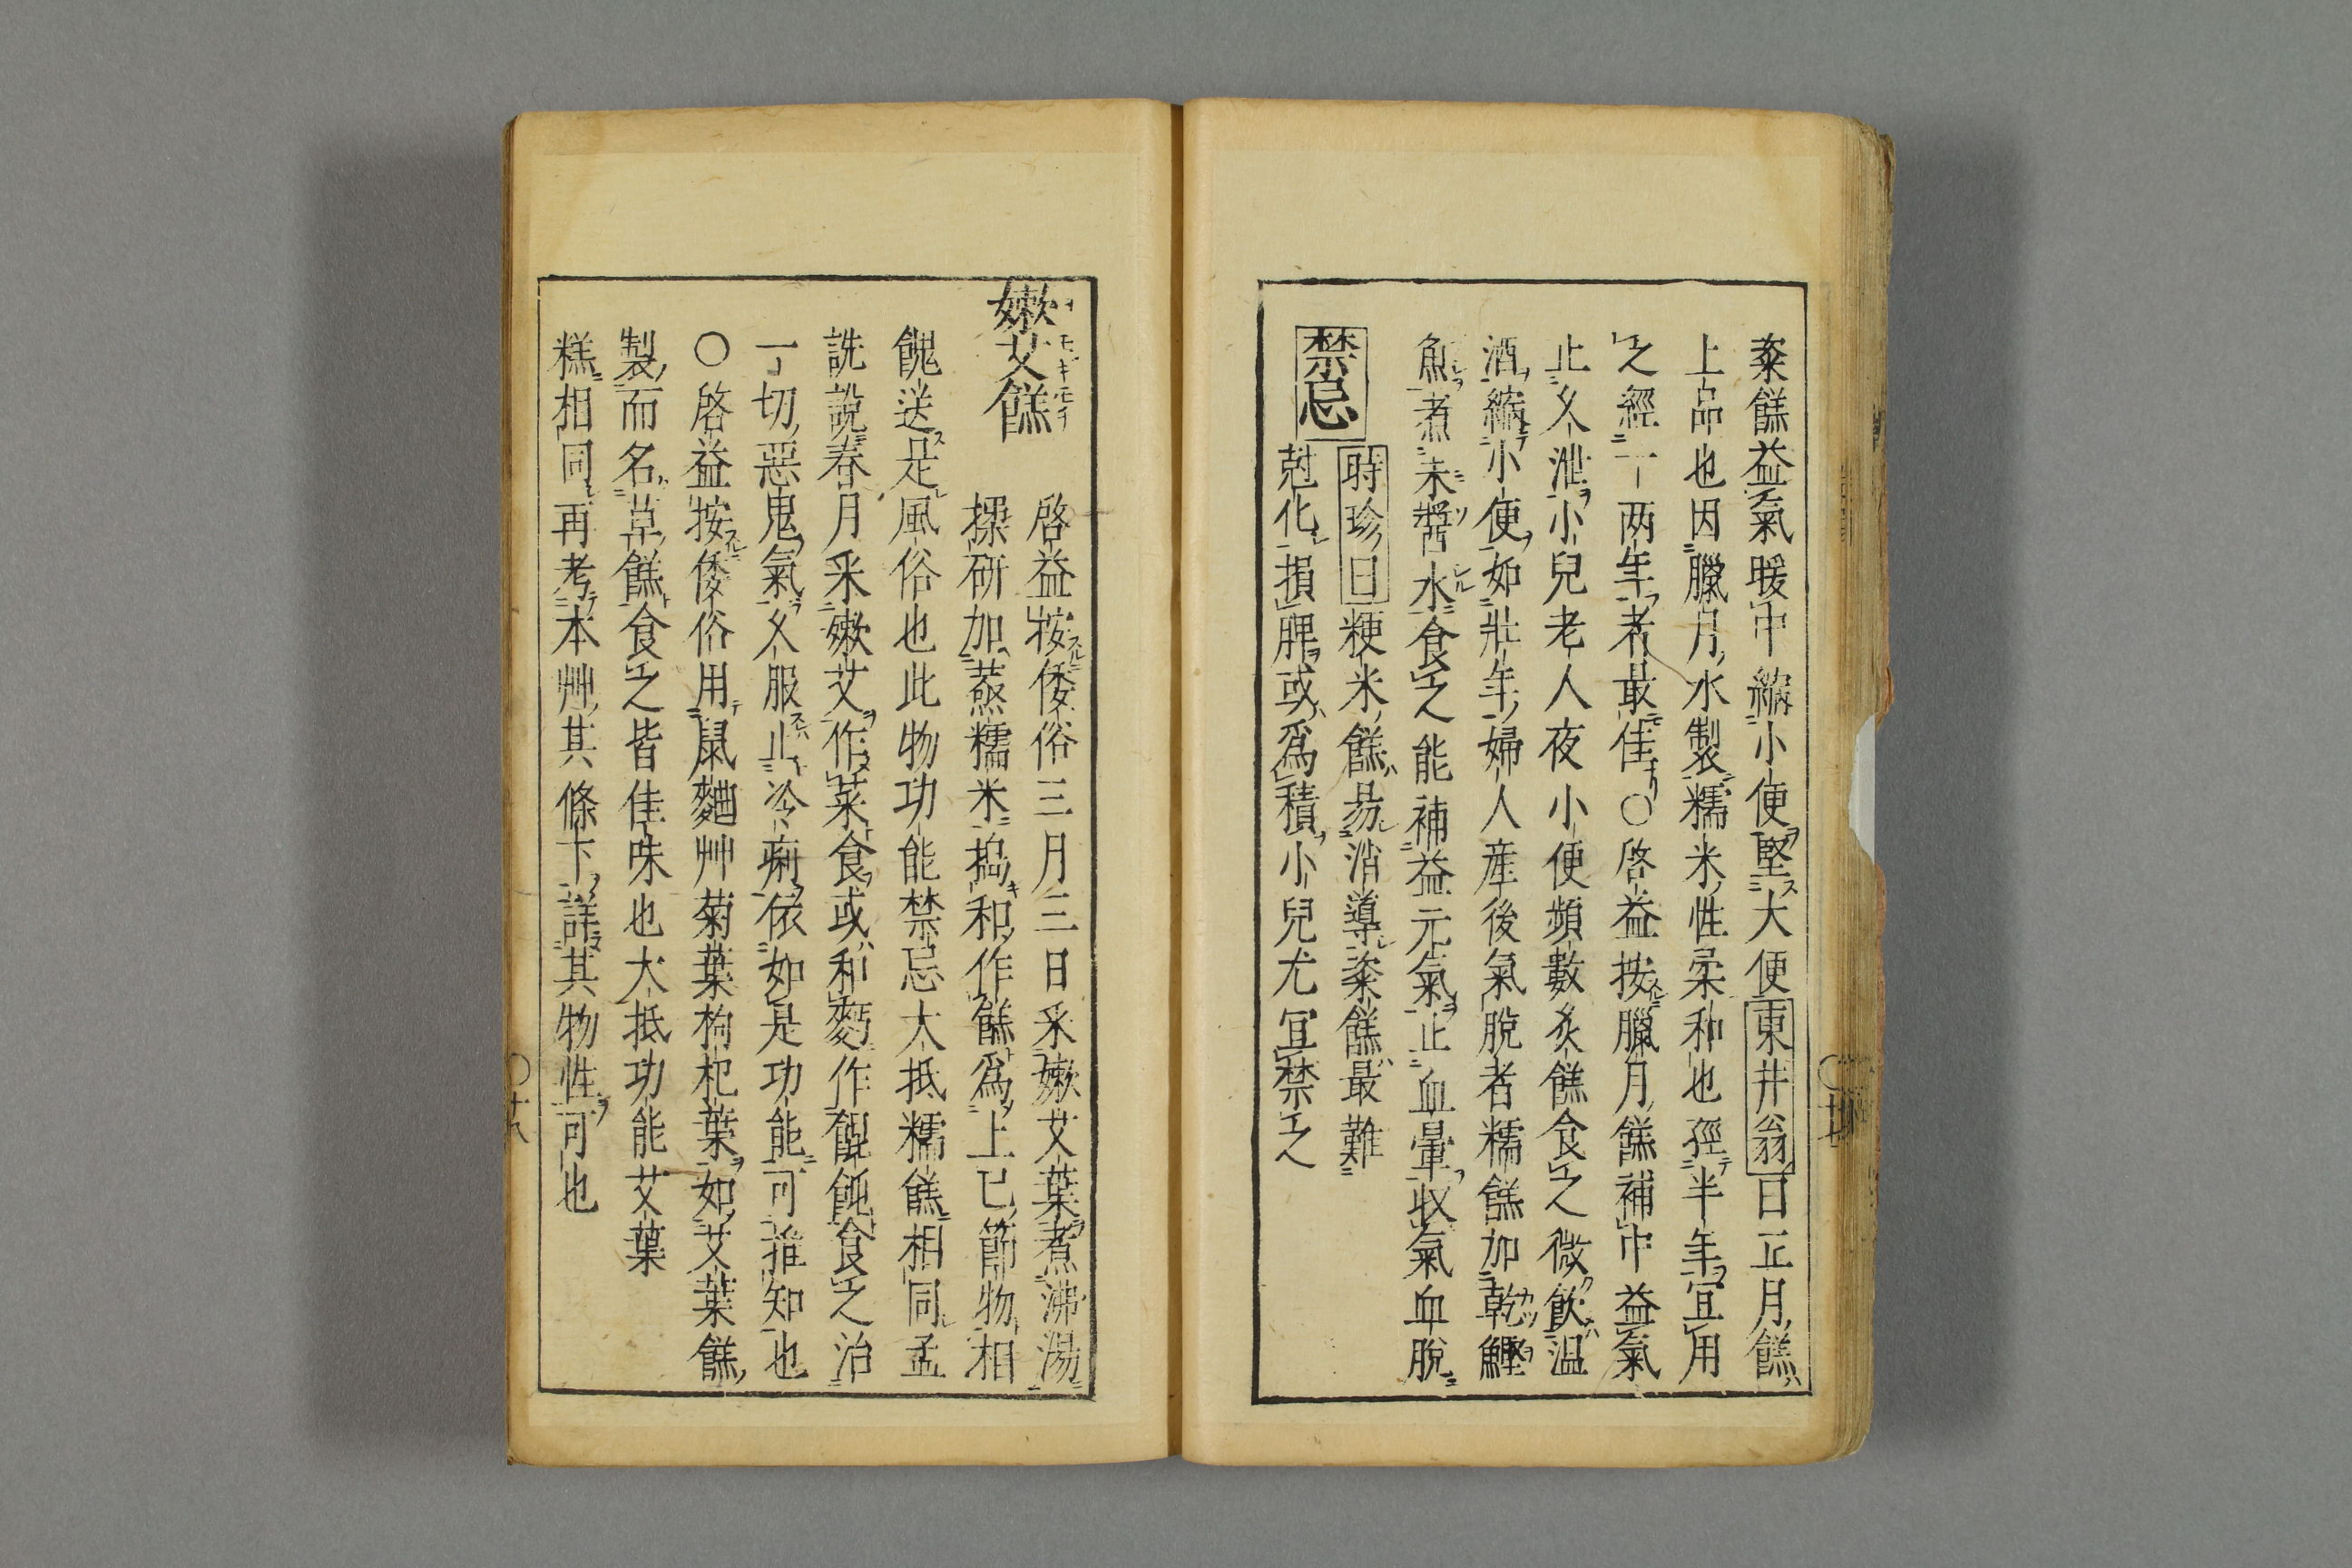 粢餻益氣暖中縮小便堅大便東井翁曰正月餻
上品也因臘月水製糯米性柔和也經半年宜用
之經一兩年者最佳○啓益按臘月餻補中益氣
止久泄小兒老人夜小便頻數炙餻食之微飲温
酒縮小便如壯年婦人産後氣脫者糯餻加乾鰹
魚煮未醬水食之能補益元氣止血暈收氣血脫
禁忌 時珍曰粳米餻易消導粢餻最難
尅化損脾或爲積小兒尤宜禁之
嫩艾餻 啓益按倭俗三月三日采嫩艾葉煮沸湯
揉研加蒸糯米搗和作餻爲上巳節物相
餽送是風俗也此物功能禁忌大抵糯餻相同孟
詵說春月采嫩艾作菜食或和麪作餛飩食之治
一切惡鬼氣久服止冷痢依如是功能可推知也
○啓益按倭俗用鼠麴艸菊葉枸杞葉如艾葉餻
製而名草餻食之皆佳味也大抵功能艾葉
糕相同再考本艸其條下詳其物性可也
○十八